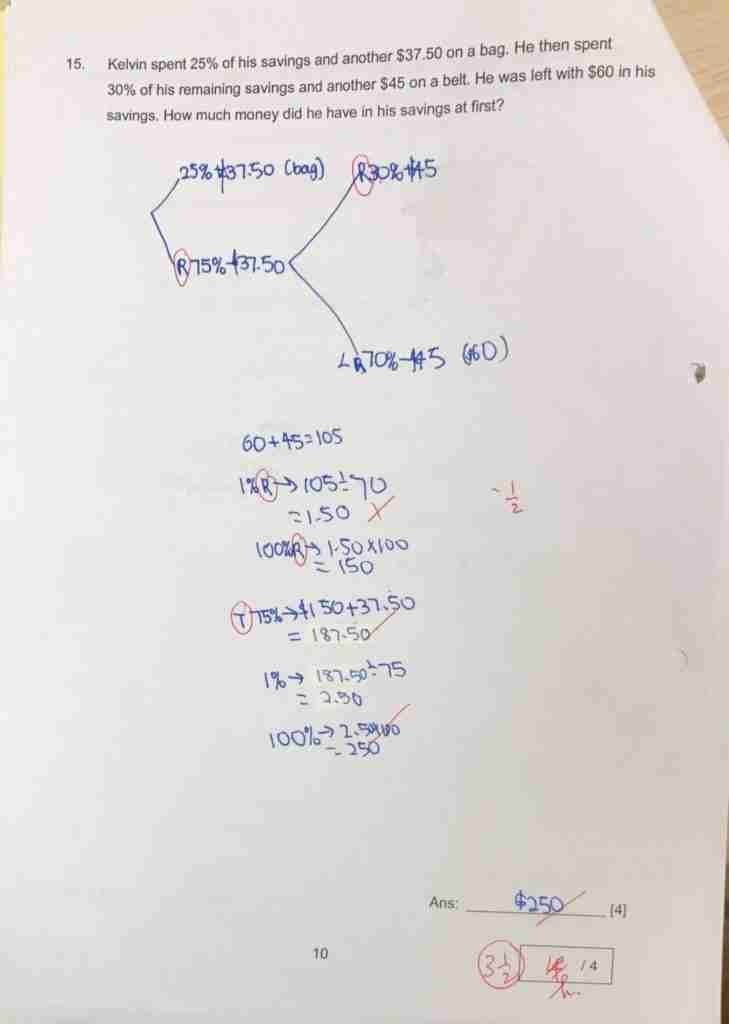 15. Kelvin spent 25% of his savings and another $37.50 on a bag. He then spent
30% of his remaining savings and another $45 on a belt. He was left with $60 in his
savings. How much money did he have in his savings at first?
25%+$37.50 (bag)
R30%+$45
R75%-$37.50
LR70%-$45 ($60)
60+45=105
1%R→105÷70
=1.50
- 1/2
100%R→1.50×100
= 150
T75%→$150+37.50
= 187.50
1%→ 187.50÷75
= 2.50
100%→2.50×100
= 250
Ans: $250 [4]
10
3 1/2 / 4